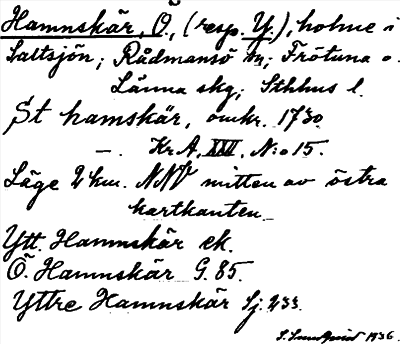 Hamnskär, Ö., (resp. Y.), holme i
Saltsjön; Rådmansö sn; Frötuna o.
Länna skg; Sthlms l.
St hamskär, omkr. 1730
— Kr A, XXVI, N:o 15.
Läge 2 km. NNV mitten av östra
kartkanten.
Ytt. Hamnskär ek.
Ö. Hamnskär G. 85.
Yttre Hamnskär Sj. 233.
1936.